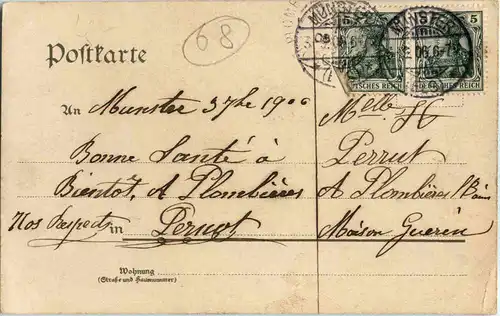 68
MÜNSTER
MÜNSTER
5
5
DEUTSCHES REICH
DEUTSCHES REICH
Postkarte
An Munster 3 7bre 1906
Bonne Santé à
Bientot, A Plombières
Nos Respects
in Perrut
Melle H
Perrut
A Plombières
Maison Guerin
Wohnung
(Straße und Hausnummer)